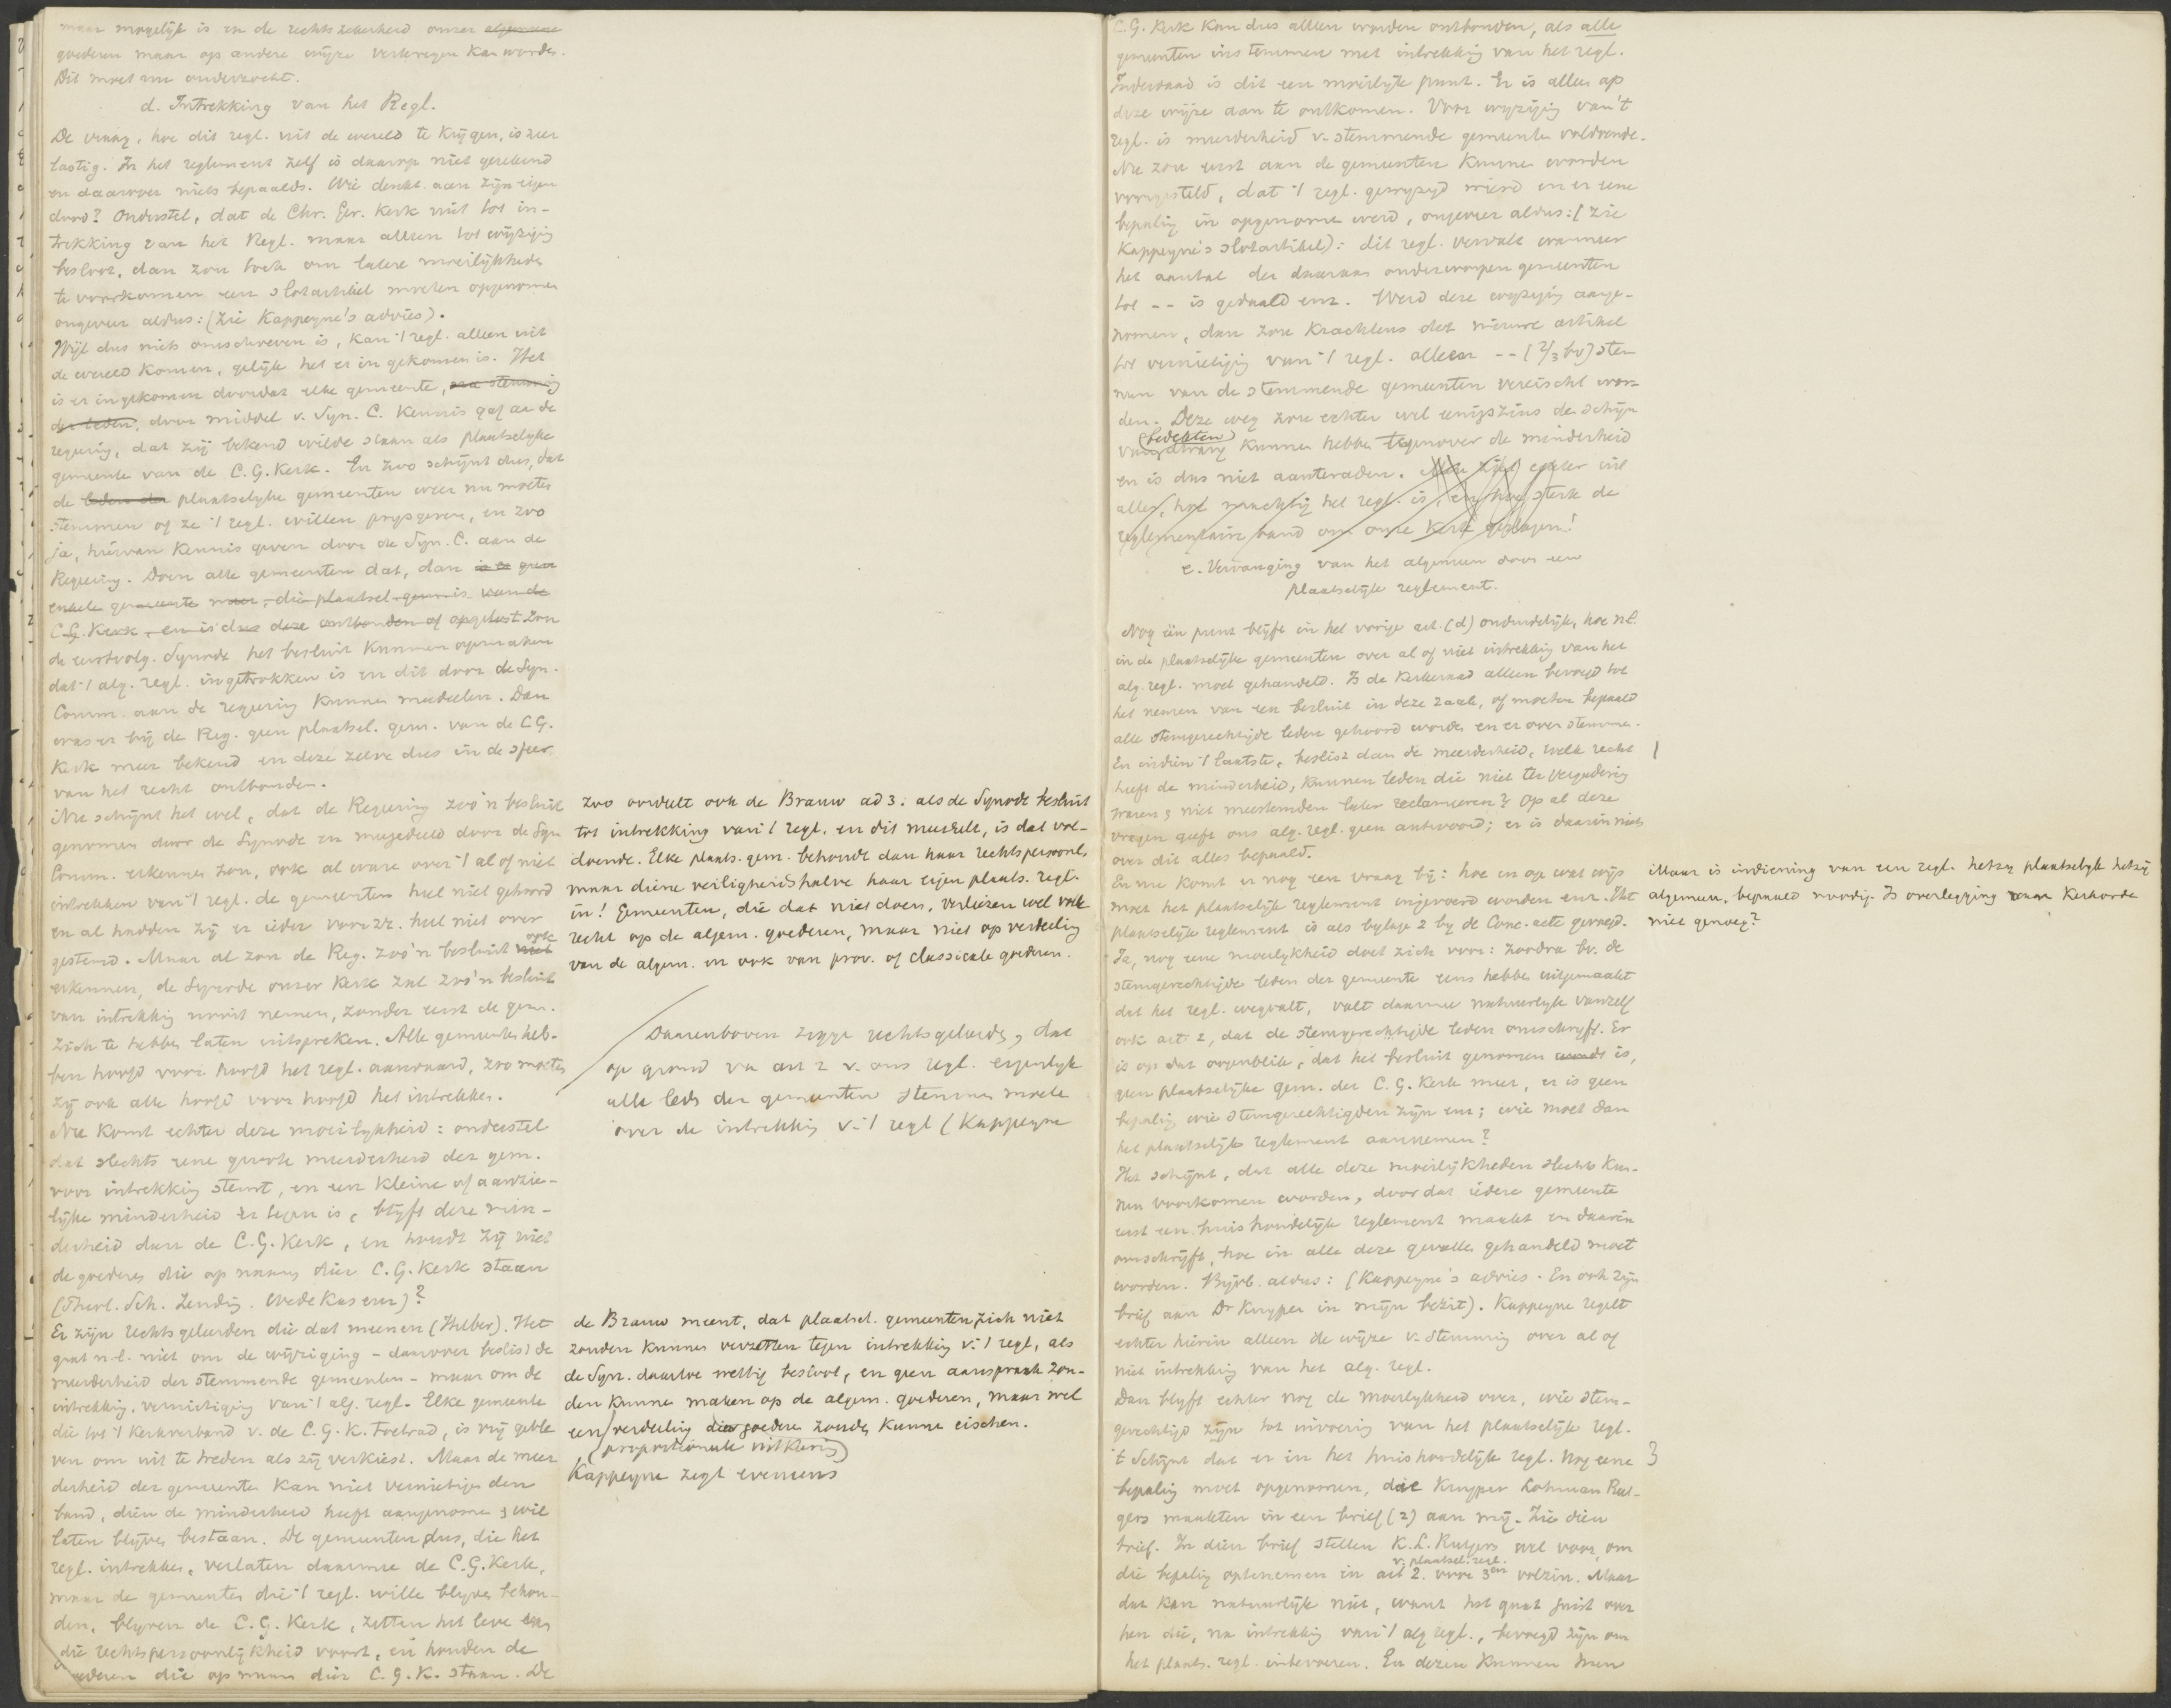 maar mogelijk is en de rechtszekerheid onzer algemeene
goederen maar op andere wijze verkregen kan worden.
Dit moet nu onderzocht.
d. Intrekking van het Regl.
De vraag, hoe dit regl. uit de wereld te krijgen, is zeer
lastig. In het reglement zelf is daarop niet gerekend
en daarover niets bepaald. Wie denkt aan zijn eigen
dood? Onderstel, dat de Chr. Ger. Kerk niet tot in-
trekking van het Regl. maar alleen tot wijziging
besloot, dan zou toch om latere moeilijkheden
te voorkomen een slotartikel moeten opgenomen
ongeveer aldus: (Zie Kappeyne's advies).
Wijl dus niets omschreven is, kan 't regl. alleen uit
de wereld komen, gelijk het er in gekomen is. Het
is er in gekomen doordat elke gemeente, na stemming
der leden, door middel v. Syn. C. kennis gaf aan de
regering, dat zij bekend wilde staan als plaatselijke
gemeente van de C.G. Kerk. En zoo schijnt dus, dat
de leden der plaatselijke gemeenten weer nu moeten
stemmen of ze 't regl. willen prijsgeven, en zoo
ja, hiervan kennis geven door de Syn. C. aan de
Regering. Doen alle gemeenten dat, dan is er geen
enkele gemeente meer, die plaatsel. gem. is van de
C.G. Kerk, en is dus deze ontbonden of opgelost zou
de eerstvolg. Synode het besluit kunnen opmaken
dat 't alg. regl. ingetrokken is en dit door de Syn.
Comm. aan de regering kunnen meedeelen. Dan
was er bij de Reg. geen plaatsel. gem. van de C.G.
Kerk meer bekend en deze zelve dus in de sfeer
van het recht ontbonden.
Nu schijnt het wel, dat de Regering zoo'n besluit
genomen door de Synode en meegedeeld door de Syn
Comm. erkennen zou, ook al ware over 't al of niet
intrekken van 't regl. de gemeenten heel niet gehoord
en al hadden zij er ieder voor zz. heel niet over
gestemd. Maar al zou de Reg. zoo'n besluit niet ook
erkennen, de Synode onzer Kerk zal zoo'n besluit
van intrekking nooit nemen, zonder eerst de gem.
zich te hebben laten uitspreken. Alle gemeenten heb-
ben hoofd voor hoofd het regl. aanvaard, zoo moeten
zij ook alle hoofd voor hoofd het intrekken.
Nu komt echter deze moeilijkheid: onderstel
dat slechts eene groote meerderheid der gem.
voor intrekking stemt, en een kleine of aanzie-
lijke minderheid er tegen is, blijft deze min-
derheid dan de C.G. Kerk, en houdt zij niet
de goederen die op naam dier C.G. Kerk staan
(Theol. Sch. Zending. Wedekas enz)?
Er zijn rechtsgeleerden die dat meenen (Hilber). Het
gaat n.l. niet om de wijziging - daarover beslist de
meerderheid der stemmende gemeenten - maar om de
intrekking, vernietiging van 't alg. regl. Elke gemeente
die tot 't Kerkverband v. de C.G.K. toetrad, is vrij geble
ven om uit te treden als zij verkiest. Maar de meer
derheid der gemeenten kan niet vernietigen den
band, dien de minderheid heeft aangenomen & wil
laten blijven bestaan. De gemeenten dus, die het
regl. intrekken, verlaten daarmee de C.G. Kerk,
maar de gemeenten die 't regl. willen blijven behou-
den, blijven de C.G. Kerk, zetten het leve van
die rechtspersoonlijkheid voort, en houden de
goederen die op naam dier C.G.K. staan. De
Zoo oordeelt ook de Brauw ad 3: als de Synode besluit
tot intrekking van 't regl. en dit meedeelt, is dat vol-
doende. Elke plaats. gem. behoude dan haar rechtspersoonl.
maar diene veiligheidshalve haar eigen plaats. regl.
in! Gemeenten, die dat niet doen, verliezen wel elk
recht op de algem. goederen, maar niet op verdeeling
van de algem. en ook van prov. of classicale goederen.
Daarenboven zeggen rechtsgeleerden, dat
op grond van art 2 v. ons regl. eigenlijk
alle leden der gemeenten stemmen moeten
over de intrekking v. 't regl (Kappeyne
de Brauw meent, dat plaatsel. gemeenten zich niet
zouden kunnen verzetten tegen intrekking v. 't regl, als
de Syn. daartoe wettig besloot, en geen aanspraak zou-
den kunnen maken op de algem. goederen, maar wel
een verdeeling dier goederen zouden kunnen eischen.
(proportioneele uitkeering)
Kappeyne zegt eveneens
C.G. Kerk kan dus alleen worden ontbonden, als alle
gemeenten instemmen met intrekking van het regl.
Inderdaad is dit een moeilijk punt. Er is alleen op
deze wijze aan te ontkomen. Voor wijziging van 't
regl. is meerderheid v. stemmende gemeenten voldoende.
Nu zou eerst aan de gemeenten kunnen worden
voorgesteld, dat 't regl. gewijzigd wierd en er eene
bepaling in opgenomen werd, ongeveer aldus: (zie
Kappeyne's slotartikel): dit regl. vervalt wanneer
het aantal der daaraan onderworpen gemeenten
tot -- is gedaald enz. Werd deze wijziging aange-
nomen, dan zou krachtens dat nieuwe artikel
tot vernietiging van 't regl. alleen -- (2/3 bv) stem
men van de stemmende gemeenten vereischt wor-
den. Deze weg zou echter wel eenigszins den schijn
(bedekten)
van dwang kunnen hebben tegenover de minderheid
en is dus niet aanteraden. Men ziet echter uit
alles, hoe machtig het regl. is, en hoe sterk de
reglementaire band om onze Kerk geslagen!
e. Vervanging van het algemeen door een
plaatselijk reglement.
Nog één punt blijft in het vorige art. (d) onduidelijk, hoe nl.
in de plaatselijke gemeenten over al of niet intrekking van het
alg. regl. moet gehandeld. Is de Kerkeraad alleen bevoegd tot
het nemen van een besluit in deze zaak, of moeten bepaald
alle stemgerechtigde leden gehoord worden en er over stemmen.
En indien 't laatste, beslist dan de meerderheid, welk recht
heeft de minderheid, kunnen leden die niet ter vergadering
waren & niet meestemden later reclameeren? Op al deze
vragen geeft ons alg. regl. geen antwoord; er is daarin niets
over dit alles bepaald.
En nu komt er nog een vraag bij: hoe en op wat wijs
moet het plaatselijk reglement ingevoerd worden enz. Het
plaatselijk reglement is als bijlage 2 bij de Conc. acte gevoegd.
Ja, nog eene moeilijkheid doet zich voor: zoodra bv. de
stemgerechtigde leden der gemeente eens hebben uitgemaakt
dat het regl. wegvalt, valt daarmee natuurlijk vanzelf
ook art. 2, dat de stemgerechtigde leden omschrijft. Er
is op dat oogenblik, dat het besluit genomen wordt is,
geen plaatselijke gem. der C.G. Kerk meer, er is geen
bepaling wie stemgerechtigden zijn enz; wie moet dan
het plaatselijk reglement aannemen?
Het schijnt, dat alle deze moeilijkheden slechts kun-
nen voorkomen worden, doordat iedere gemeente
eerst een huishoudelijk reglement maakt en daarin
omschrijft, hoe in alle deze gevallen gehandeld moet
worden. Bijvb. aldus: (Kappeyne's advies. En ook zijn
brief aan Dr Kuyper in mijn bezit). Kappeyne regelt
echter hierin alleen de wijze v. stemming over al of
niet intrekking van het alg. regl.
Dan blijft echter nog de moeilijkheid over, wie stem-
gerechtigd zijn tot invoering van het plaatselijk regl.
't Schijnt dat er in het huishoudelijk regl. nog eene
bepaling moet opgenomen, die Kuyper Lohman Rut-
gers maakten in een brief (2) aan mij. Zie dien
brief. In dien brief stellen K.L. Rutgers wel voor, om
v. plaatsel. regl.
die bepaling optenemen in art 2. voor 3en volzin. Maar
dat kan natuurlijk niet, want het gaat juist over
hen die, na intrekking van 't alg regl., bevoegd zijn om
het plaats. regl. intevoeren. En dezen kunnen men
Maar is indiening van een regl. hetzij plaatselijk hetzij
algemeen, bepaald noodig. Is overlegging van Kerkorde
niet genoeg?